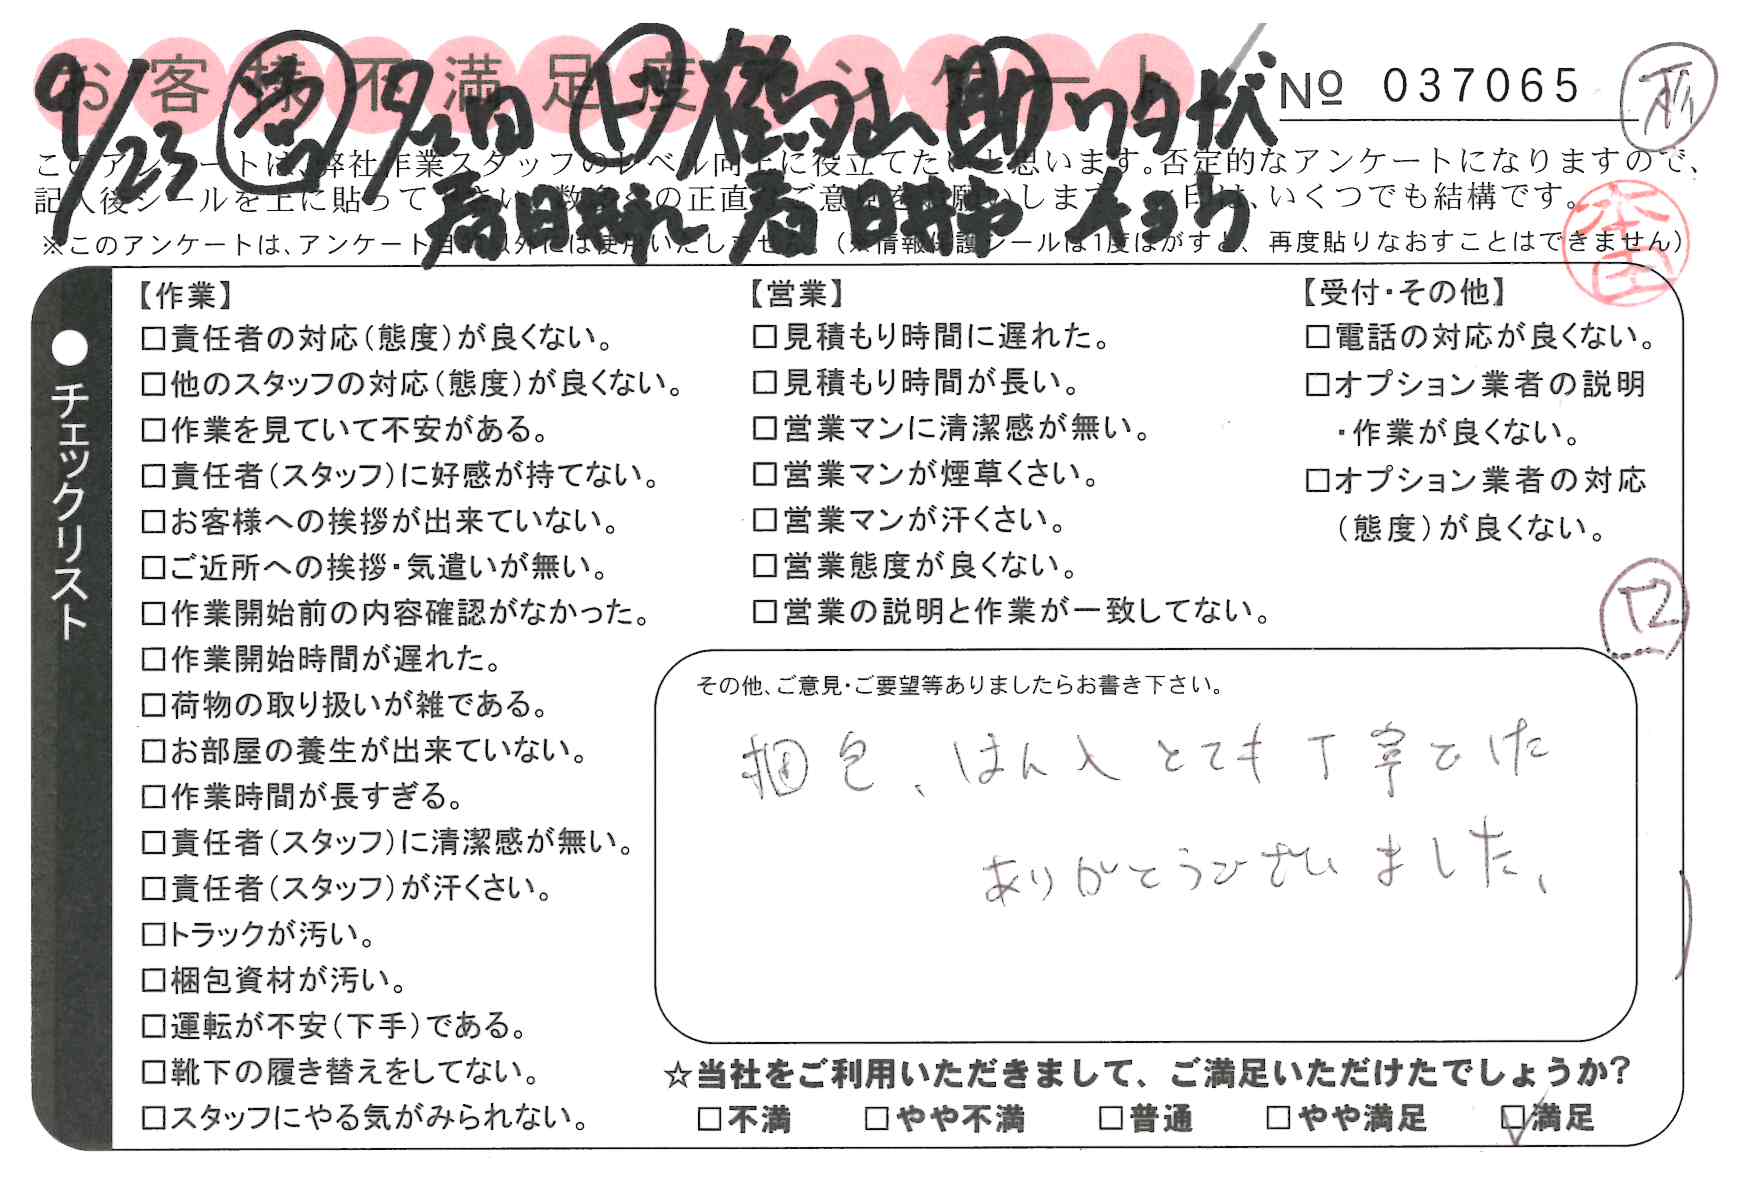 お客様不満足度アンケート
№ 037065
9/23
このアンケートは、弊社作業スタッフのレベル向上に役立てたいと思います。否定的なアンケートになりますので、
記入後シールを上に貼って下さい。数多くの正直なご意見をお願いします。✓印は、いくつでも結構です。
春日井 → 春日井市
※このアンケートは、アンケート自体以外には使用いたしません。(※情報保護シールは1度はがすと、再度貼りなおすことはできません)
本田
●チェックリスト
【作業】
□責任者の対応(態度)が良くない。
□他のスタッフの対応(態度)が良くない。
□作業を見ていて不安がある。
□責任者(スタッフ)に好感が持てない。
□お客様への挨拶が出来ていない。
□ご近所への挨拶・気遣いが無い。
□作業開始前の内容確認がなかった。
□作業開始時間が遅れた。
□荷物の取り扱いが雑である。
□お部屋の養生が出来ていない。
□作業時間が長すぎる。
□責任者(スタッフ)に清潔感が無い。
□責任者(スタッフ)が汗くさい。
□トラックが汚い。
□梱包資材が汚い。
□運転が不安(下手)である。
□靴下の履き替えをしてない。
□スタッフにやる気がみられない。
【営業】
□見積もり時間に遅れた。
□見積もり時間が長い。
□営業マンに清潔感が無い。
□営業マンが煙草くさい。
□営業マンが汗くさい。
□営業態度が良くない。
□営業の説明と作業が一致してない。
【受付・その他】
□電話の対応が良くない。
□オプション業者の説明
・作業が良くない。
□オプション業者の対応
(態度)が良くない。
その他、ご意見・ご要望等ありましたらお書き下さい。
梱包、はん入とても丁寧でした
ありがとうございました、
☆当社をご利用いただきまして、ご満足いただけたでしょうか?
□不満 □やや不満 □普通 □やや満足 □満足